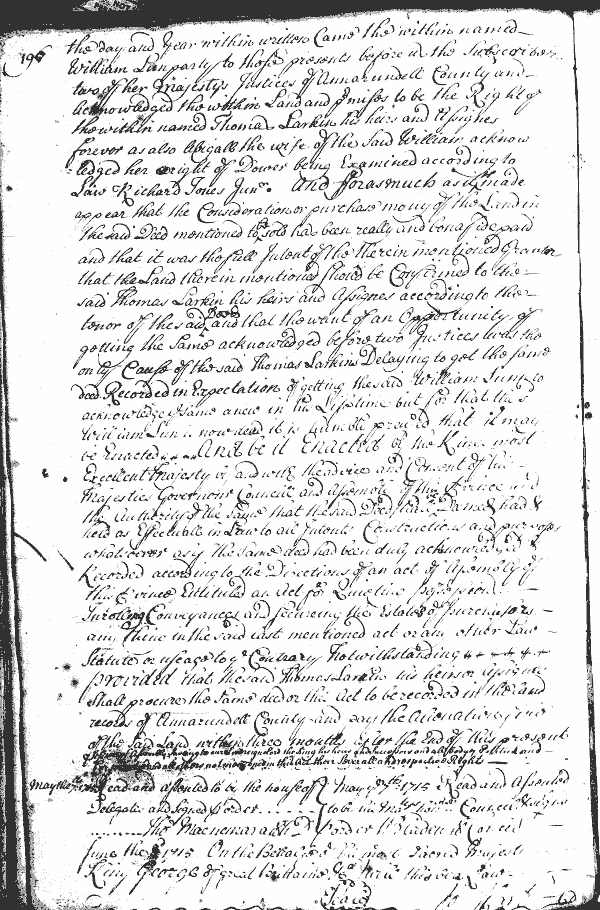 196
the day and year within written Came the within named
William Lun party to those presents before us the Subscribers
two of her Majestys Justices of Annarundell County and
Acknowledged the within Land and to be the Right of
the within named Thomas Larkin his heirs and Assignes
forever as also Abigall the wife of the said William acknow
ledged her right of Dower being Examined according to
Law Richard Jones Junr. And forasmuch as it is made
appear that the Consideration or purchase money of the Land in
the said Deed mentioned to be sold has been really and bonafide paid
and that it was the full Intent of the Therein mentioned Grantor
that the Land therein mentioned should be Confirmed to the
said Thomas Larkin his heirs and Assignes according to the
tenor of the said Deed and that the want of an Opportunity of
getting the Same acknowledged before two Justices was the
only Cause of the said Thomas Larkins Delaying to get the same
deed Recorded in Expectation of getting the said William Lun to
acknowledge same anew in his Lifetime but for that the s
William Lun is now dead it is humbly pray'd that it may
be Enacted And be it Enacted by the King most
Excellent Majesty by and with the advice and Consent of his
Majesties Governour Council and Assembly of this Province and
the Authority of the Same that the said Deed shall be Deamed had &
held as Effectuable in Law to all Intents Constructions and purposes
whatsoever as if the Same deed had been duly acknowledged &
Recorded according to the Directions of an act of Assembly of
this Province Entituled an Act for Quieting Possession
Inrolling Conveyances and Secureing the Estates of purchasors
any thing in the said last mentioned act or any other Law
Statute or useage to ye Contrary Notwithstanding
provided that the said Thomas Larkin his heirs or Assignes
Shall procure the Same deed or this Act to be recorded in the Land
records of Annarundell County and pay the Alienation fine
of the Said Land within three months after the End of this present
in this Act their Severall and respective Right
May the Read and assented to by the house of May 1715 Read and Assented
Delegates and signed order to by his Council signed
Thos. Macnemara order W Bladen
June the 1715 On the Behalf of his most Sacred Majesty
King George of great Brittaine &c this be a Law